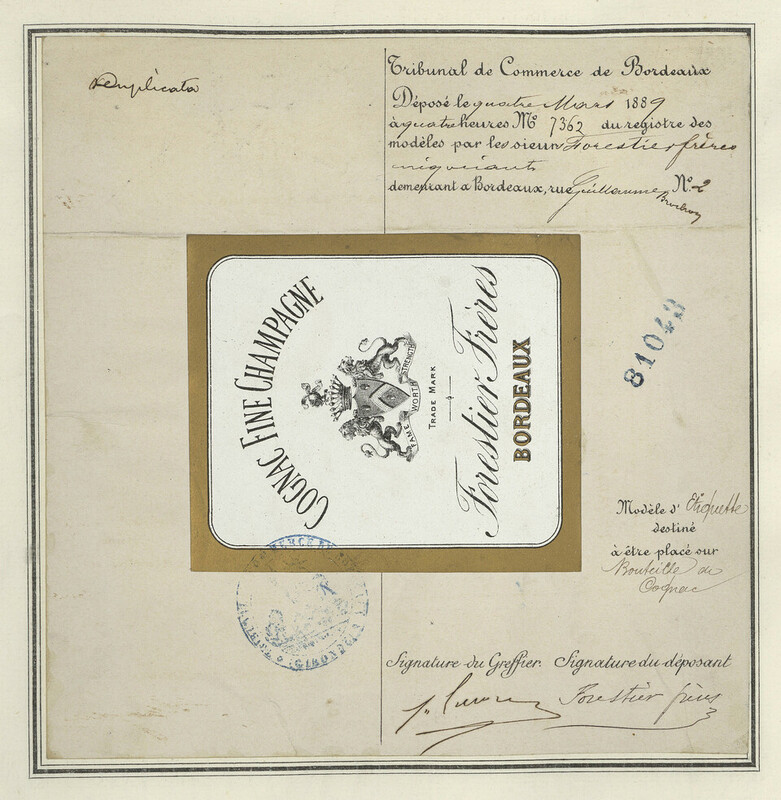 Duplicata
Tribunal de Commerce de Bordeaux
Déposé le quatre Mars 1889
à quatre heures No 7362 du registre des
modèles par les sieurs Forestier frères
négociants
demeurant a Bordeaux, rue Guillaume No. 2
Brochon
COGNAC FINE CHAMPAGNE
FAME WORTH STRENGTH
TRADE MARK
Forestier Frères
BORDEAUX
81043
Modèle d' Etiquette
destiné
à être placé sur
Bouteille de
Cognac
COMMERCE DE
GIRONDE
Signature du Greffier. Signature du déposant
Forestier frères